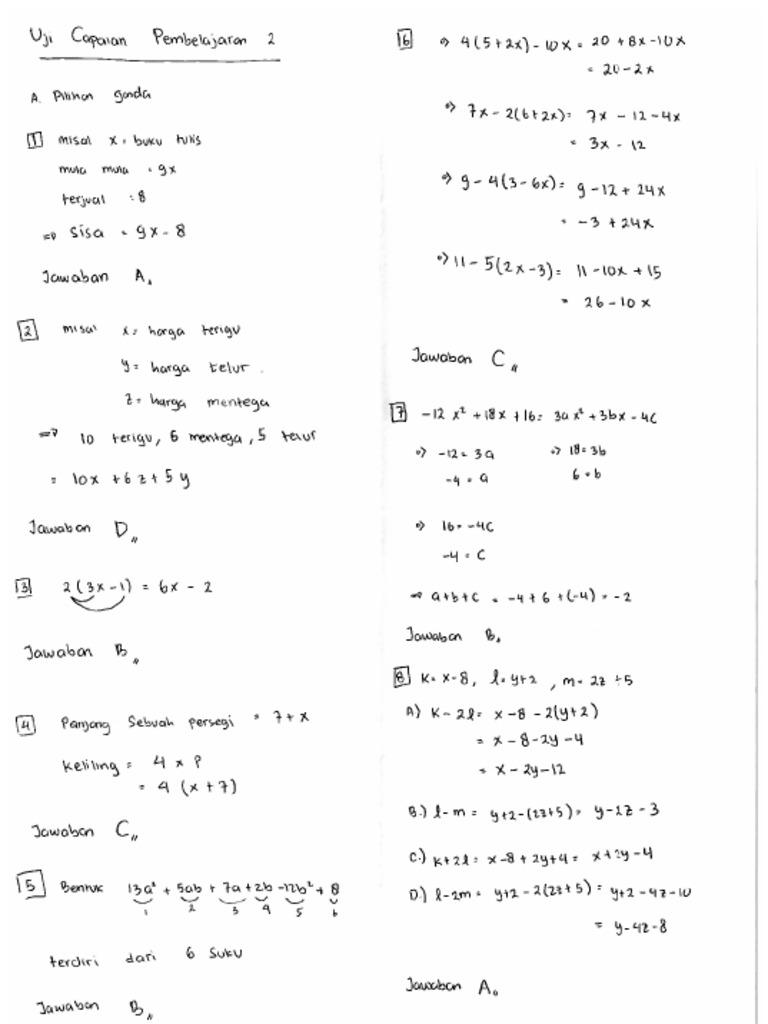 Uji Capaian Pembelajaran 2
A. Pilihan ganda
1 misal x = buku tulis
mula mula = 9x
terjual = 8
=> sisa = 9x - 8
Jawaban A,,
2 misal x = harga terigu
y = harga telur.
z = harga mentega
=> 10 terigu, 6 mentega, 5 telur
= 10x + 6z + 5y
Jawaban D,,
3 2(3x-1) = 6x - 2
Jawaban B,,
4 Panjang Sebuah persegi = 7 + x
Keliling = 4 x P
= 4 (x + 7)
Jawaban C,,
5 Bentuk 13a² + 5ab + 7a + 2b - 12b² + 8
1 2 3 4 5 6
terdiri dari 6 suku
Jawaban B,,
6 => 4(5+2x) - 10x = 20 + 8x - 10x
= 20 - 2x
=> 7x - 2(6+2x) = 7x - 12 - 4x
= 3x - 12
=> 9 - 4(3-6x) = 9 - 12 + 24x
= -3 + 24x
=> 11 - 5(2x-3) = 11 - 10x + 15
= 26 - 10x
Jawaban C,,
7 -12x² + 18x + 16 = 3ax² + 3bx - 4c
=> -12 = 3a => 18 = 3b
-4 = a 6 = b
=> 16 = -4c
-4 = c
=> a+b+c = -4 + 6 + (-4) = -2
Jawaban B,,
8 K = x-8, l = y+2, m = 2z + 5
A.) K - 2l = x - 8 - 2(y+2)
= x - 8 - 2y - 4
= x - 2y - 12
B.) l - m = y+2-(2z+5) = y - 2z - 3
C.) K+2l = x - 8 + 2y + 4 = x + 2y - 4
D.) l - 2m = y+2 - 2(2z+5) = y+2 - 4z - 10
= y - 4z - 8
Jawaban A,,